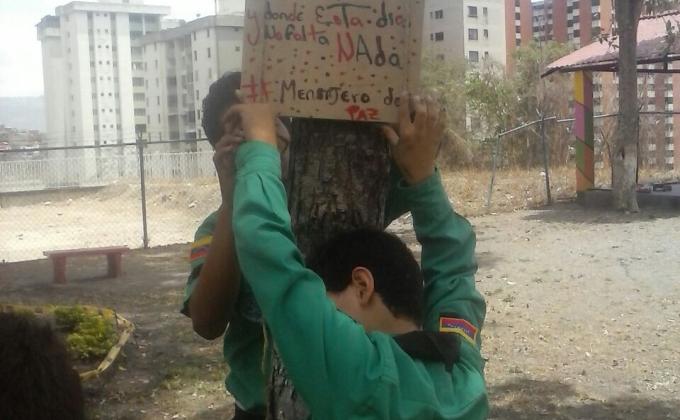 y donde Está dios
No falta NAda
# Mensajero de
PAZ